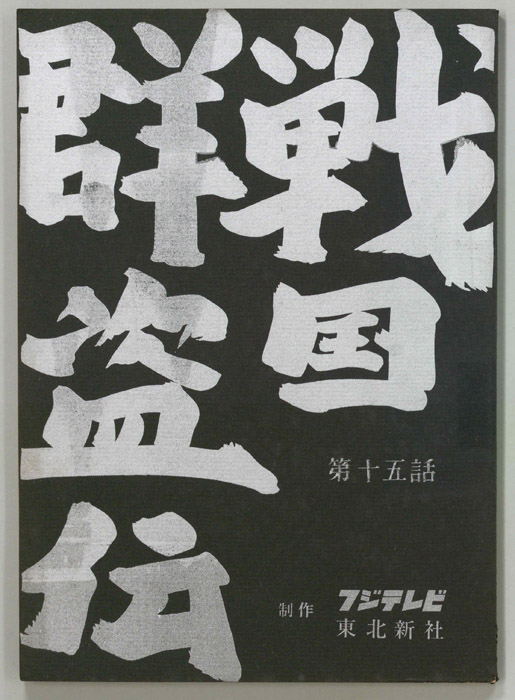 戦国
群盗伝
第十五話
制作 フジテレビ
東北新社